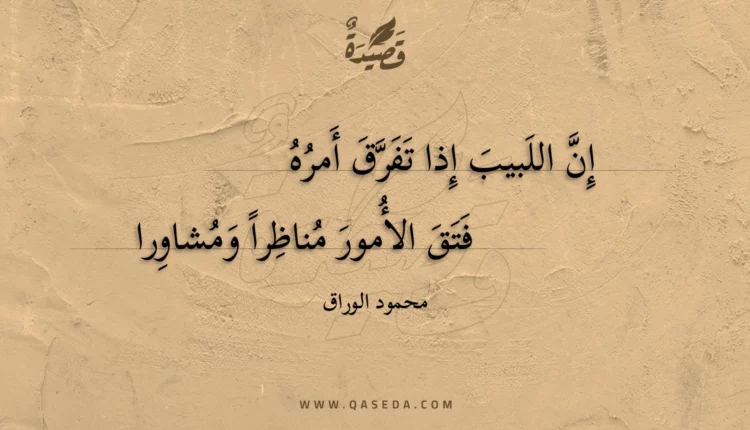 قَصِيدَةٌ
إِنَّ اللَبيبَ إِذا تَفَرَّقَ أَمرُهُ
فَتَقَ الأُمورَ مُناظِراً وَمُشاوِرا
محمود الوراق
WWW.QASEDA.COM